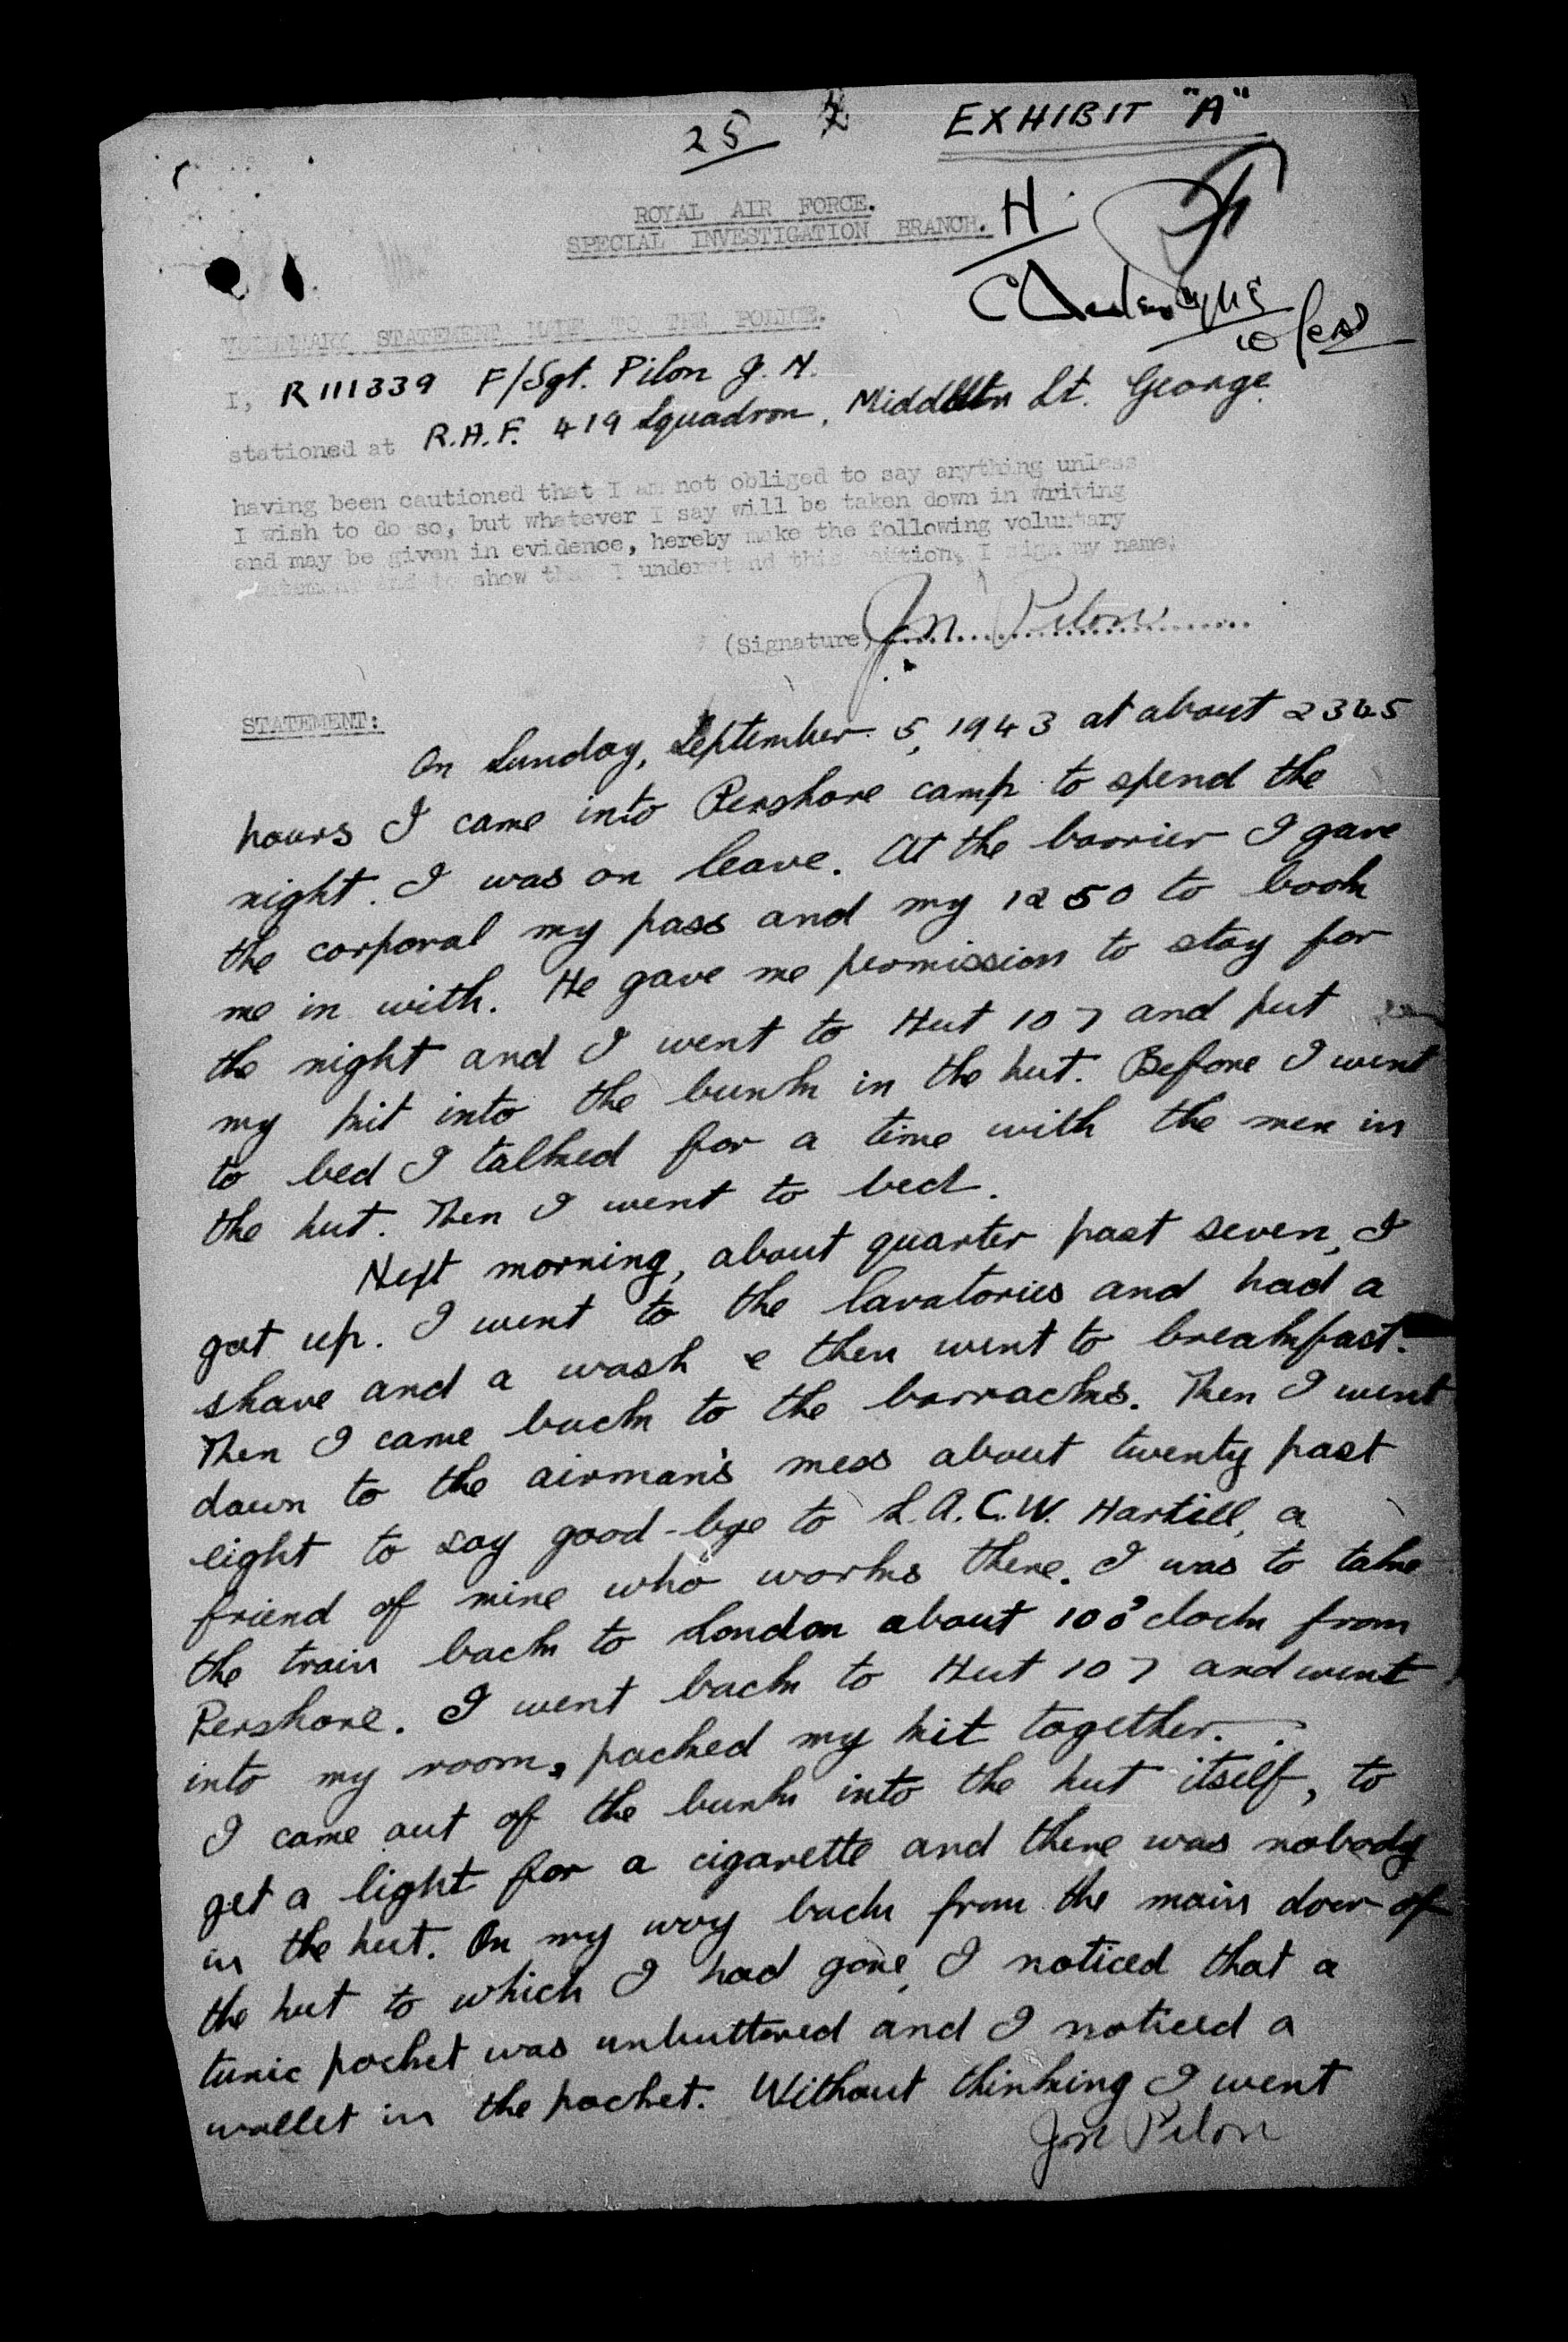 25
EXHIBIT "A"
ROYAL AIR FORCE.
SPECIAL INVESTIGATION BRANCH.
H
VOLUNTARY STATEMENT MADE TO THE POLICE.
I, R111339 F/Sgt. Pilon J. N.
stationed at R.A.F. 419 Squadron, Middleton St. George.
having been cautioned that I am not obliged to say anything unless
I wish to do so, but whatever I say will be taken down in writing
and may be given in evidence, hereby make the following voluntary
statement and to show that I understand this caution, I sign my name:
(Signature) J.N. Pilon
STATEMENT:
On Sunday, September 5, 1943 at about 2345
hours I came into Pershore camp to spend the
night. I was on leave. At the barrier I gave
the corporal my pass and my 1250 to book
me in with. He gave me permission to stay for
the night and I went to Hut 107 and put
my kit into the bunk in the hut. Before I went
to bed I talked for a time with the men in
the hut. Then I went to bed.
Next morning, about quarter past seven, I
got up. I went to the lavatories and had a
shave and a wash & then went to breakfast.
Then I came back to the barracks. Then I went
down to the airman's mess about twenty past
eight to say good-bye to L.A.C.W. Hartill, a
friend of mine who works there. I was to take
the train back to London about 10 o'clock from
Pershore. I went back to Hut 107 and went
into my room, packed my kit together.
I came out of the bunk into the hut itself, to
get a light for a cigarette and there was nobody
in the hut. On my way back from the main door of
the hut to which I had gone, I noticed that a
tunic pocket was unbuttoned and I noticed a
wallet in the pocket. Without thinking I went
J N Pilon